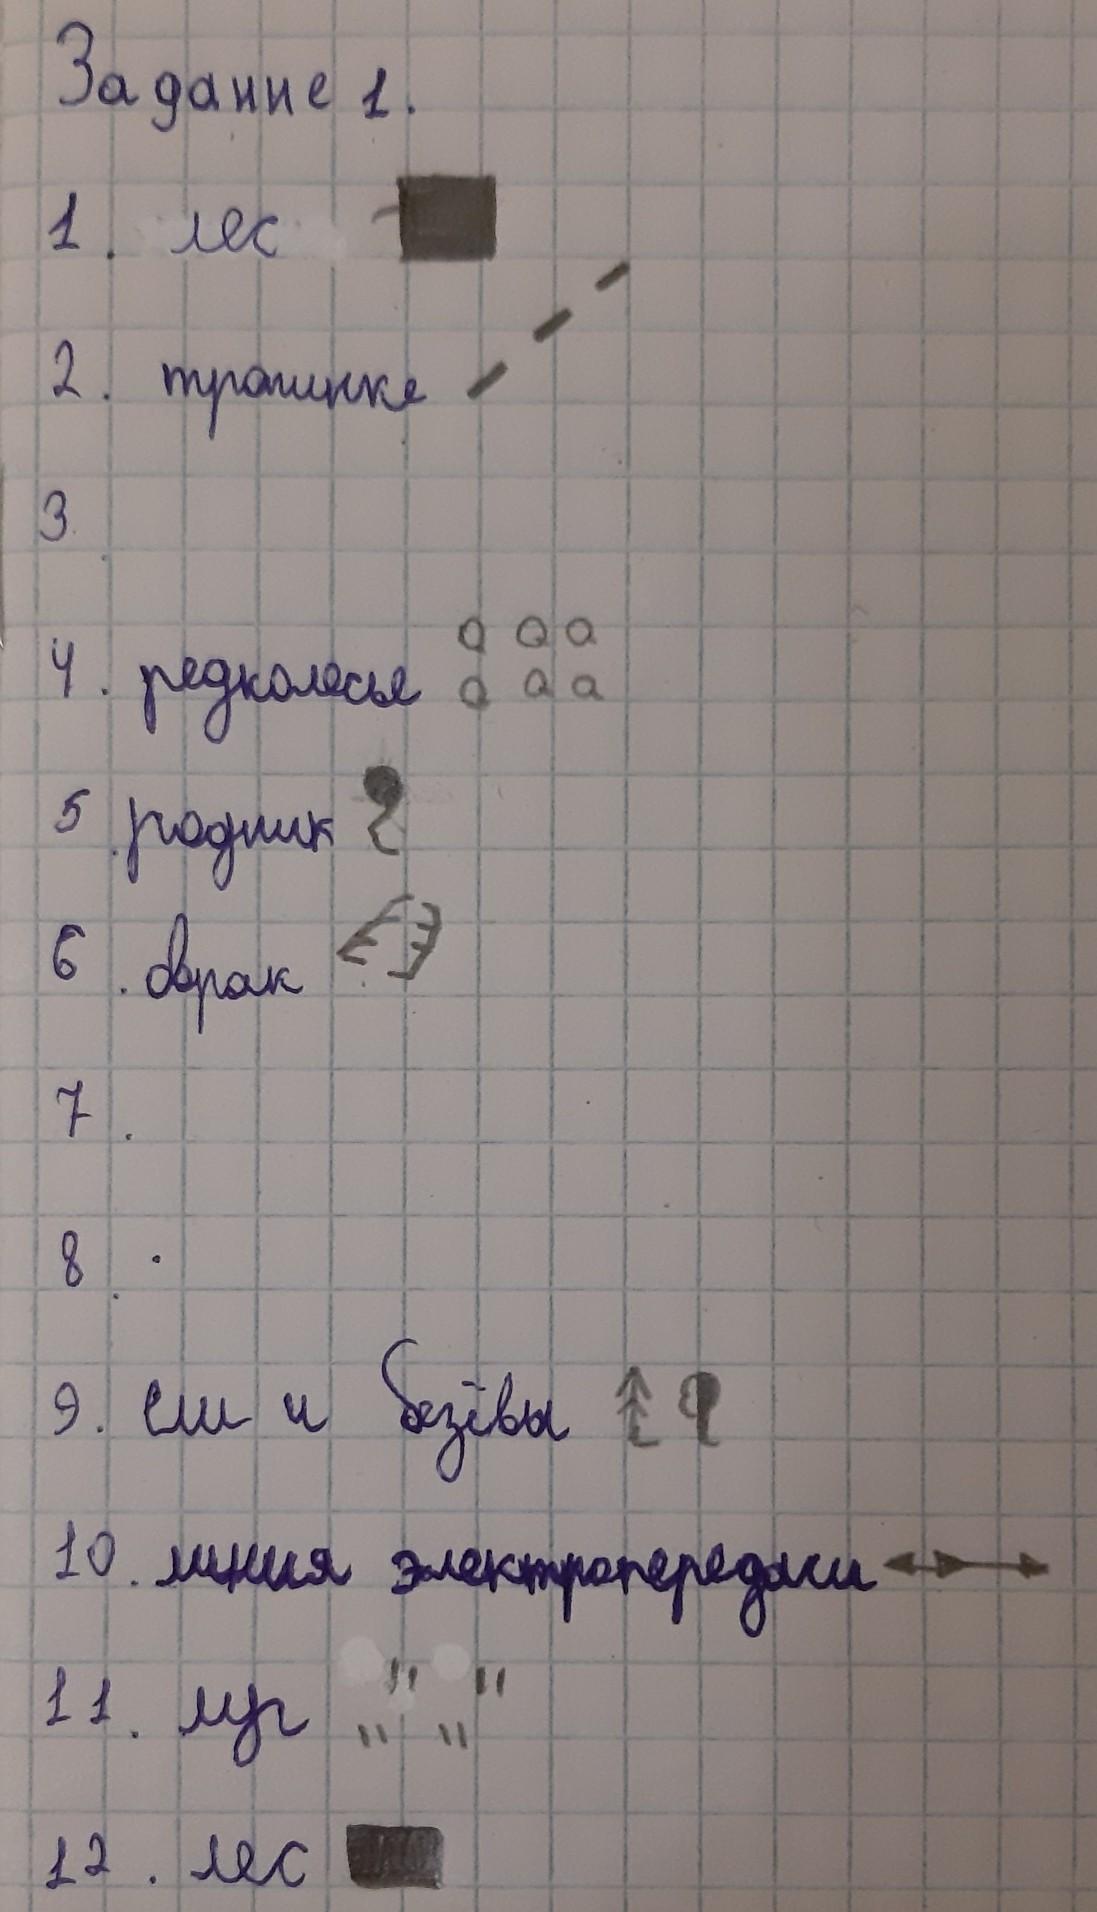 Задание 1.
1. лес
2. тропинке
3.
4. редколесье
5. родник
6. овраг
7.
8.
9. ели и берёзы
10. линия электропередачи
11. луг
12. лес